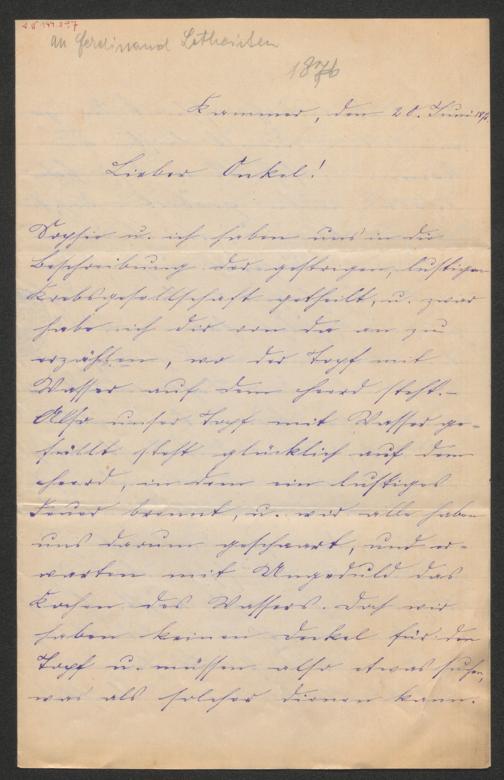 an Ferdinand Lotheissen
1876
Kammer, den 28. Juni
Lieber Onkel!
Sophie u. ich haben uns in die
Beschreibung der gestrigen, lustigen
Krebsgesellschaft getheilt, u. zwar
habe ich dir von da an zu
erzählen, wo der Topf mit
Wasser auf dem Heerd steht. –
Also unser Topf mit Wasser ge-
füllt steht glücklich auf dem
Heerd, in dem ein lustiges
Feuer brennt, u. wir alle haben
uns darum geschaart, und er-
warten mit Ungeduld das
Kochen des Wassers. Doch wir
haben keinen Deckel für den
Topf u. müssen also etwas suchen,
was als solcher dienen kann.